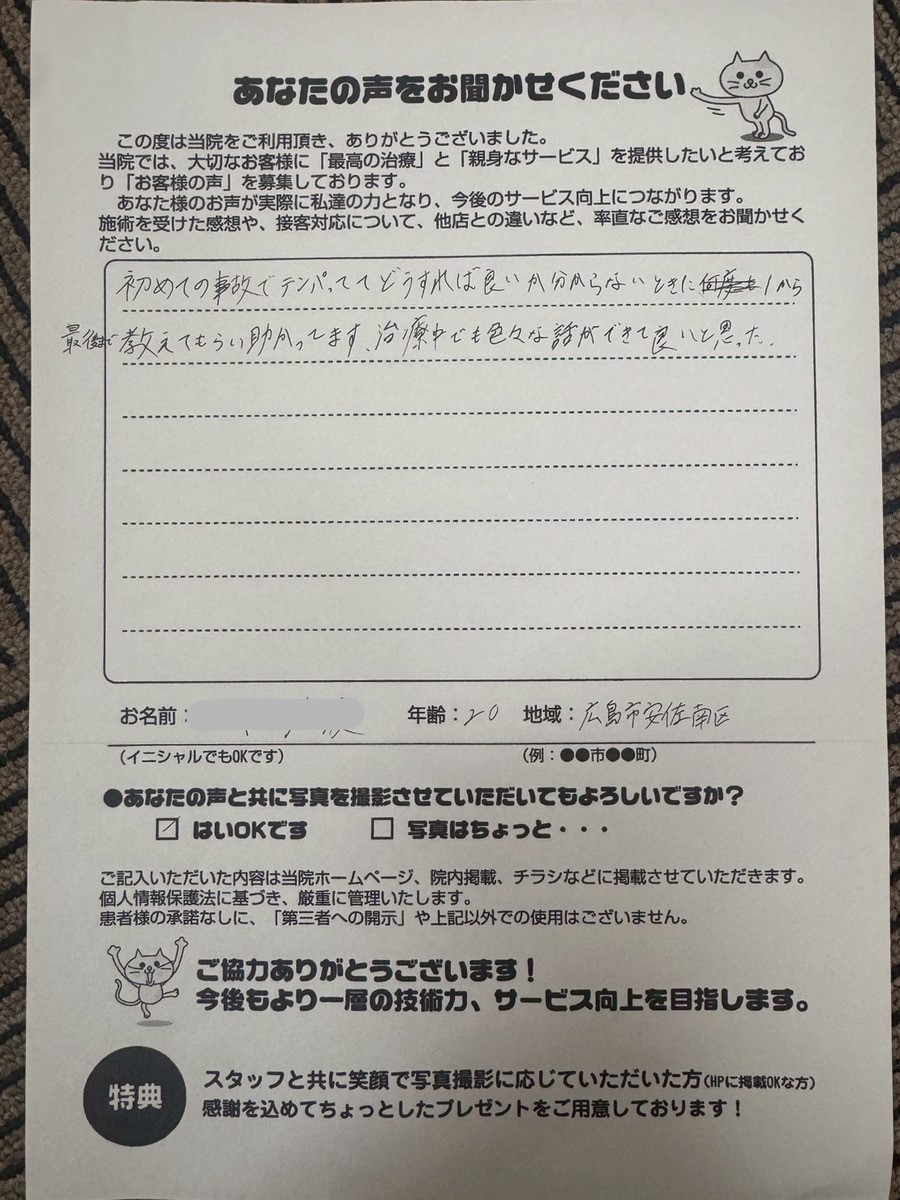 あなたの声をお聞かせください
この度は当院をご利用頂き、ありがとうございました。
当院では、大切なお客様に「最高の治療」と「親身なサービス」を提供したいと考えてお
り「お客様の声」を募集しております。
あなた様のお声が実際に私達の力となり、今後のサービス向上につながります。
施術を受けた感想や、接客対応について、他店との違いなど、率直なご感想をお聞かせく
ださい。
初めての事故でテンパっててどうすれば良いか分からないときに何度も1から
最後まで教えてもらい助かってます、治療中でも色々な話ができて良いと思った。
お名前： 年齢：20 地域：広島市安佐南区
（イニシャルでもOKです） （例：●●市●●町）
●あなたの声と共に写真を撮影させていただいてもよろしいですか？
☑ はいOKです □ 写真はちょっと・・・
ご記入いただいた内容は当院ホームページ、院内掲載、チラシなどに掲載させていただきます。
個人情報保護法に基づき、厳重に管理いたします。
患者様の承諾なしに、「第三者への開示」や上記以外での使用はございません。
ご協力ありがとうございます！
今後もより一層の技術力、サービス向上を目指します。
特典
スタッフと共に笑顔で写真撮影に応じていただいた方（HPに掲載OKな方）
感謝を込めてちょっとしたプレゼントをご用意しております！